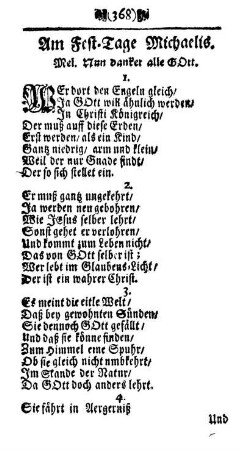 (368)
Am Fest-Tage Michaelis.
Mel. Nun danket alle GOtt.
1.
WEr dort den Engeln gleich/
Ja GOtt will ähnlich werden/
In Christi Königreich/
Der muß auff diese Erden/
Erst werden/ als ein Kind/
Gantz niedrig/ arm und klein/
Weil der nur Gnade findt/
Der so sich stellet ein.
2.
Er muß gantz ungekehrt/
Ja werden neu gebohren/
Wie JEsus selber lehrt/
Sonst gehet er verlohren/
Und kommt zum Leben nicht/
Das von GOtt selber ist;
Wer lebt im Glaubens-Licht/
Der ist ein wahrer Christ.
3.
Es meint die eitle Welt/
Daß bey gewohnten Sünden/
Sie dennoch GOtt gefällt/
Und daß sie könne finden/
Zum Himmel eine Spuhr/
Ob sie gleich nicht umbkehrt/
Im Stande der Natur/
Da GOtt doch anders lehrt.
4.
Sie fährt in Aergerniß
Und